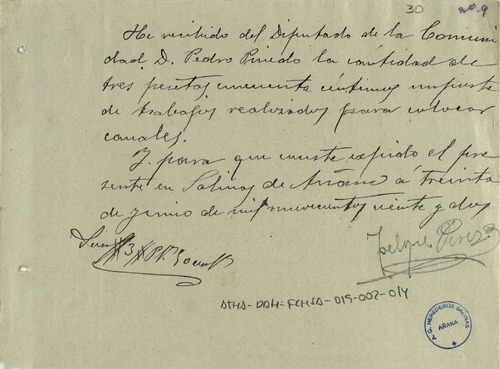 30
no. 9
He recibido del Diputado de la Comuni
dad D. Pedro Pinedo la cantidad de
tres pesetas cincuenta céntimos importe
de trabajos realizados para colocar
canales.
Y para que conste expido el pre
sente en Salinas de Añana á treinta
de junio de mil novecientos veinte y dos
Son # 3
Perez
ATHA-DAH-FCHSA-015-002-014
A.G. HEREDEROS SALINAS
AÑANA